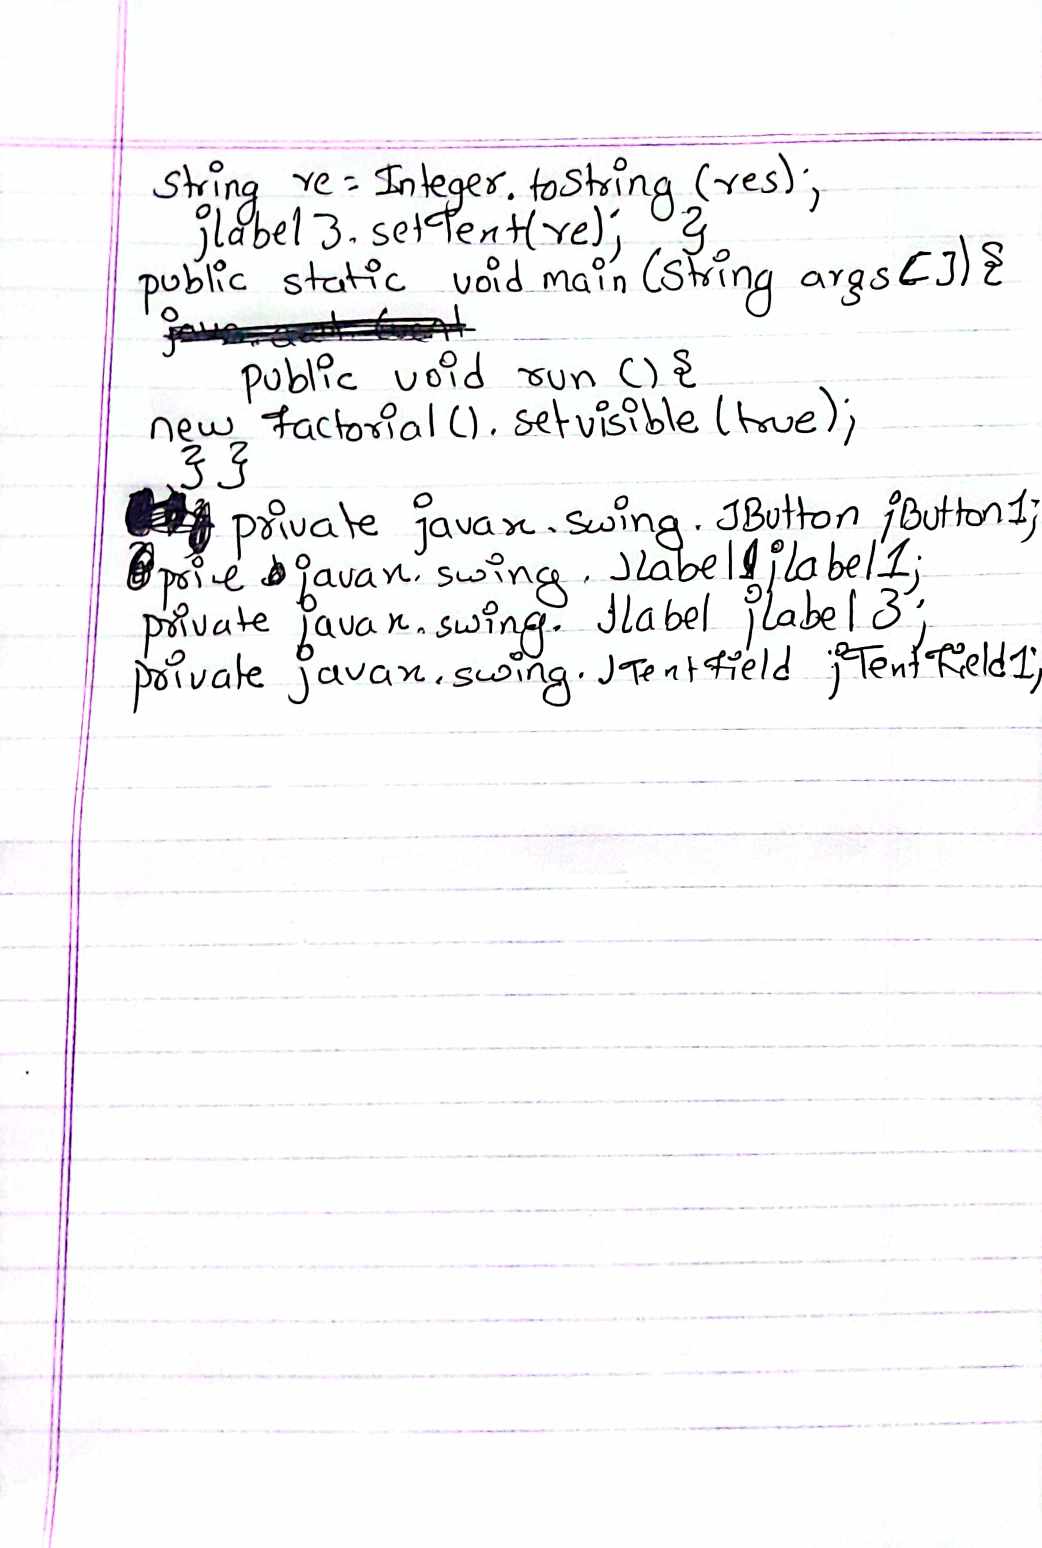 String re = Integer. toString (res);
jlabel 3. setText(re); }
public static void main (String args []) {
public void run () {
new factorial (). setvisible (true);
} }
private javax. swing. JButton jButton1;
prive javax. swing. Jlabel jlabel1;
private javax. swing. Jlabel jlabel 3;
private javax. swing. JTextfield jTextField1;